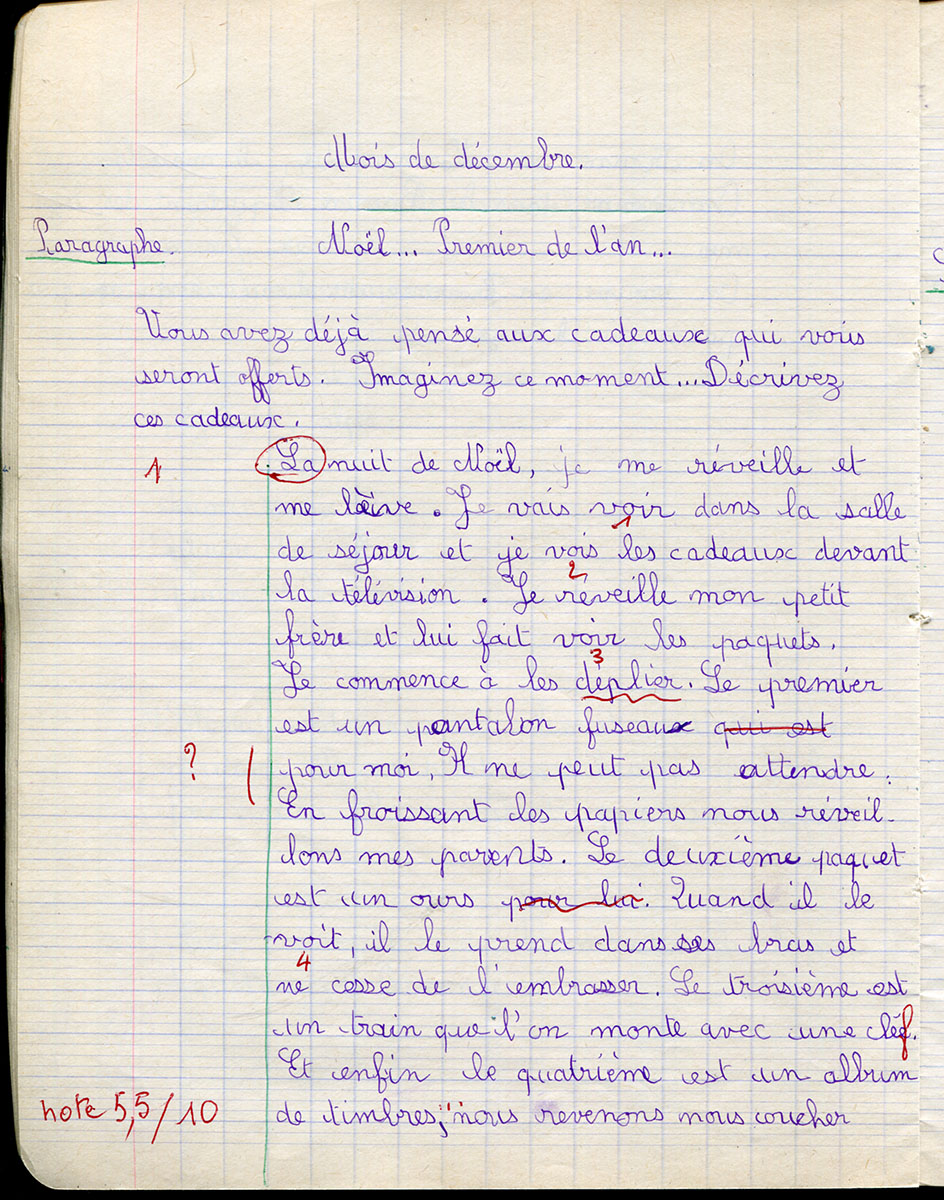 Mois de décembre.
Paragraphe. Noël... Premier de l'an...
Vous avez déjà pensé aux cadeaux qui vous
seront offerts. Imaginez ce moment... Décrivez
ces cadeaux.
1 La nuit de Noël, je me réveille et
me lève. Je vais voir dans la salle
1
de séjour et je vois les cadeaux devant
2
la télévision. Je réveille mon petit
frère et lui fait voir les paquets.
3
Je commence à les déplier. Le premier
est un pantalon fuseaux qui est
? pour moi, Il ne peut pas attendre.
En froissant les papiers nous réveil-
lons mes parents. Le deuxième paquet
est un ours pour lui. Quand il le
voit, il le prend dans ses bras et
4
ne cesse de l'embrasser. Le troisième est
un train que l'on monte avec une cléf.
Et enfin le quatrième est un album
note 5,5/10 de timbres, nous revenons nous coucher